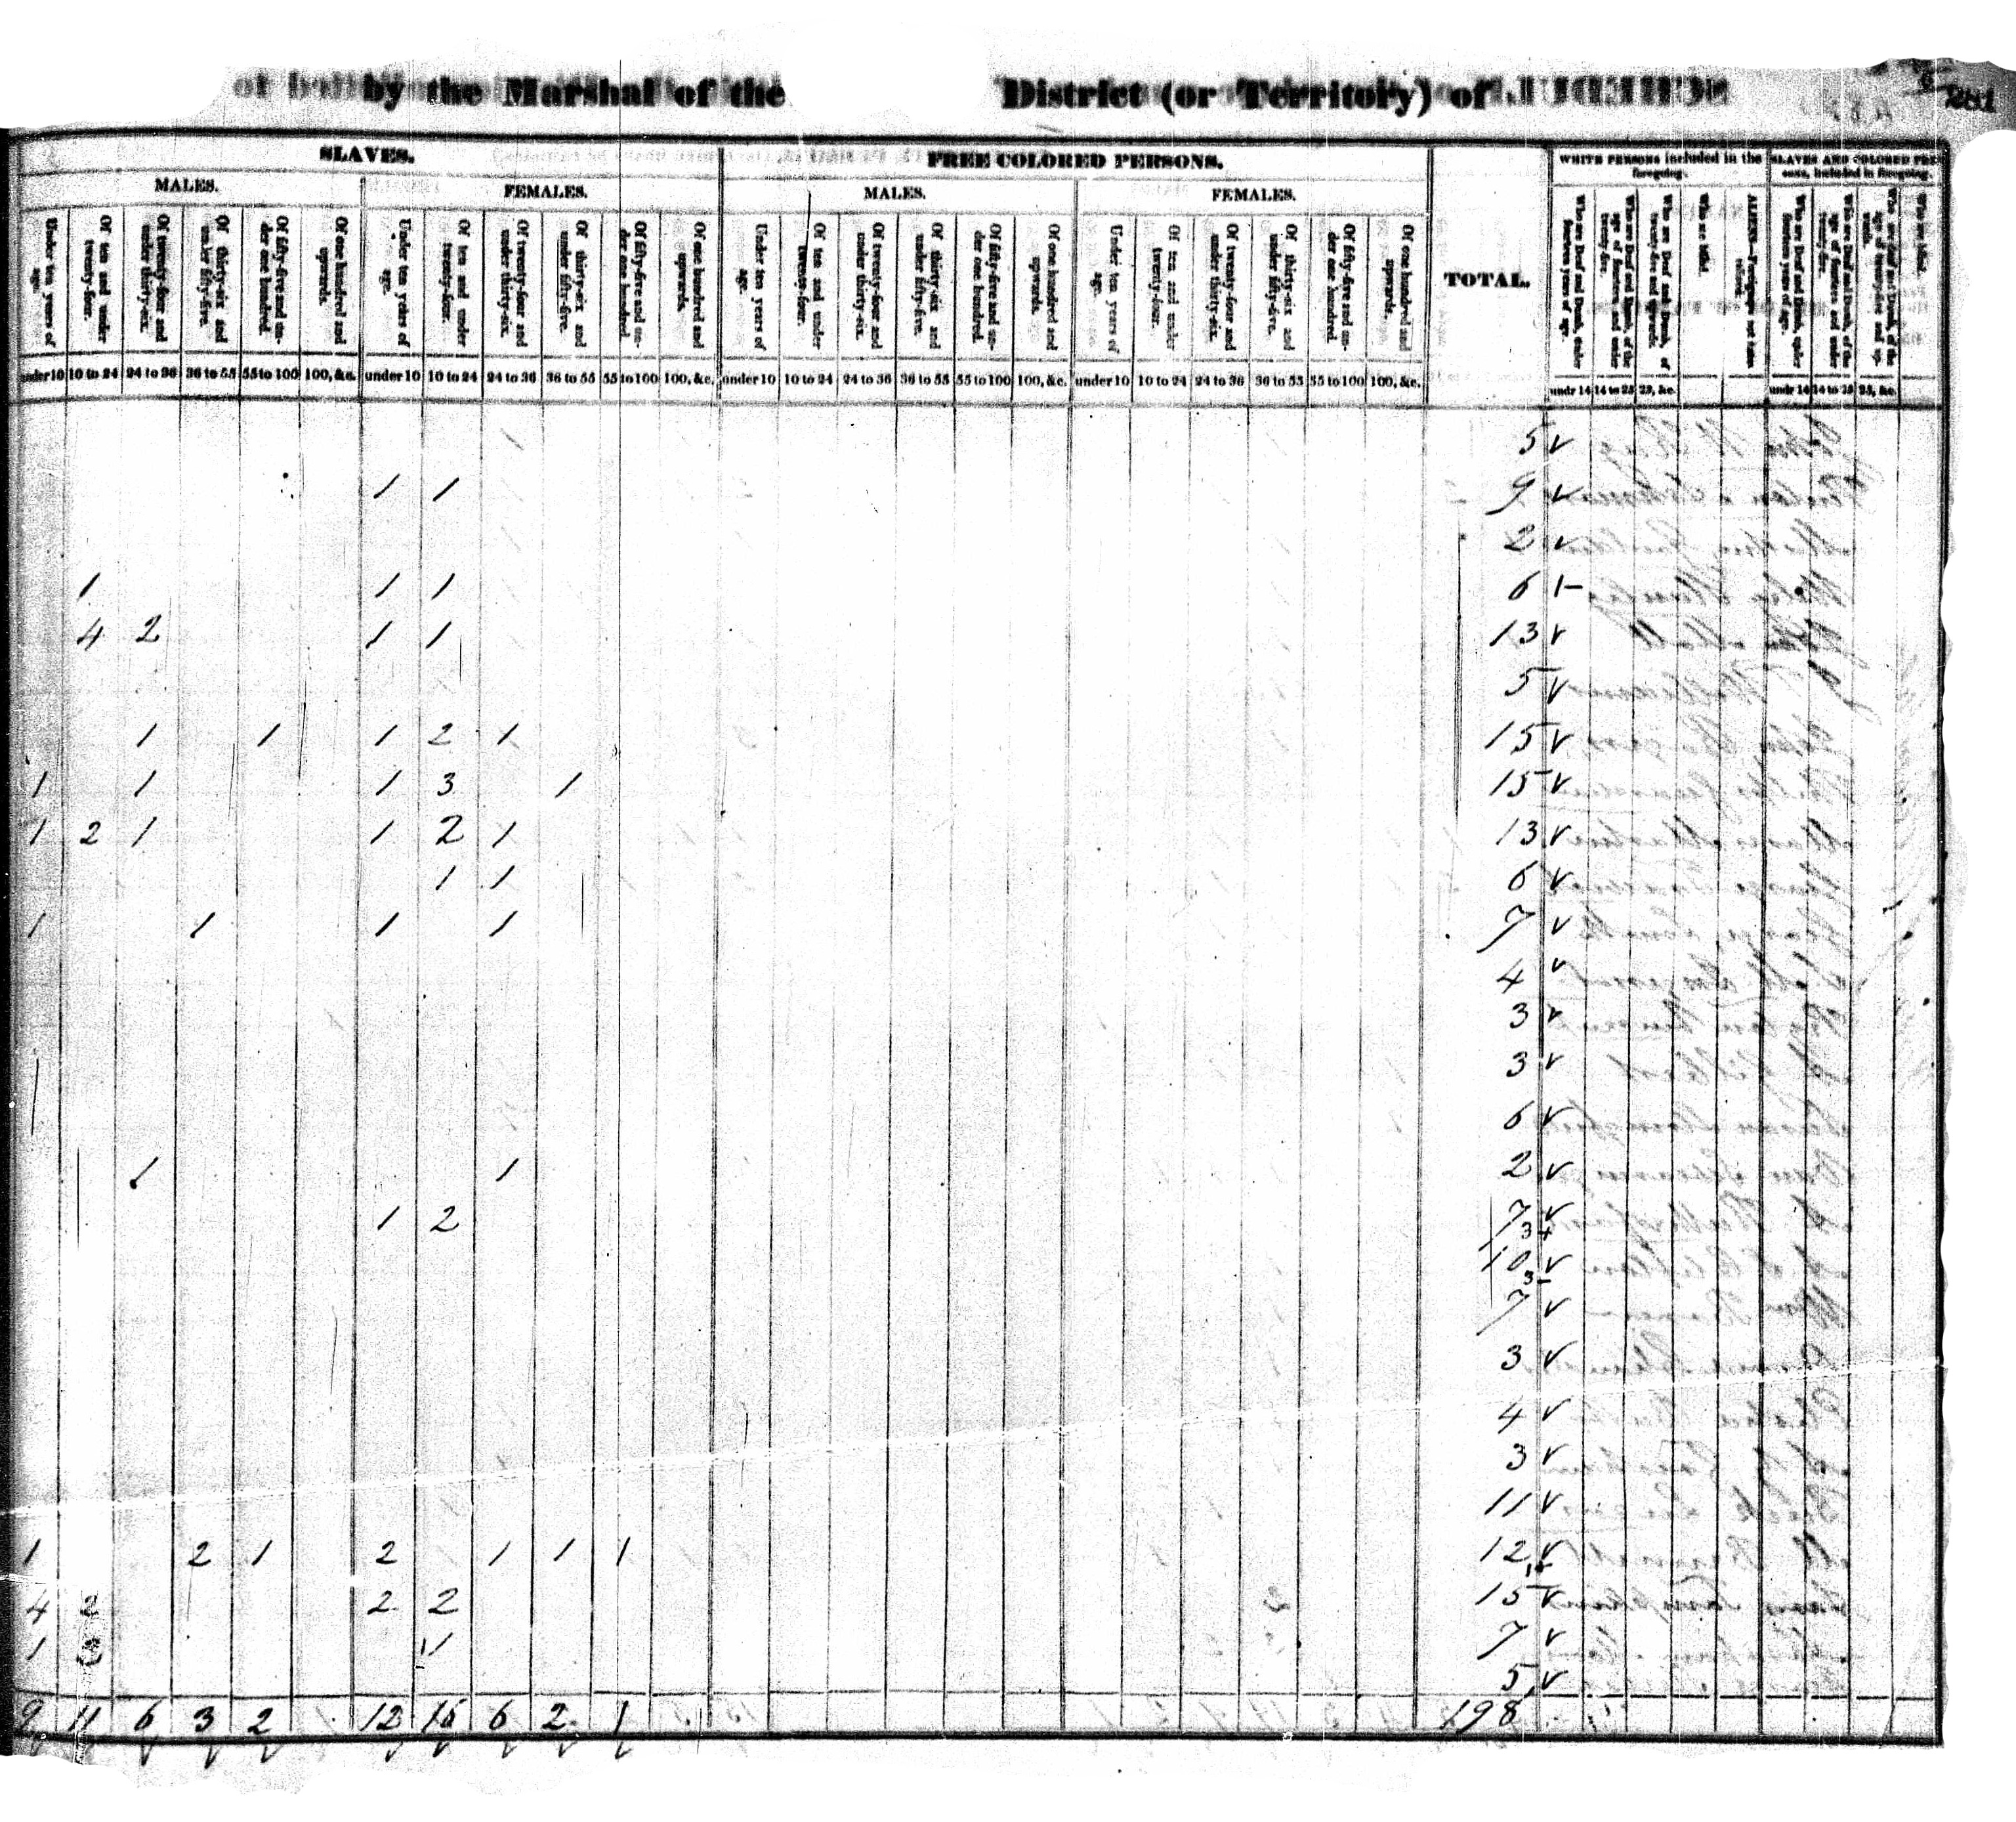 by the Marshal of the District (or Territory) of
281
SLAVES. FREE COLORED PERSONS. TOTAL. WHITE PERSONS included in the foregoing. SLAVES AND COLORED PER-
sons, included in foregoing.
MALES. FEMALES. MALES. FEMALES.
Under ten years of age. Of ten and under twenty-four. Of twenty-four and under thirty-six. Of thirty-six and under fifty-five. Of fifty-five and un-der one hundred. Of one hundred and upwards. Under ten years of age. Of ten and under twenty-four. Of twenty-four and under thirty-six. Of thirty-six and under fifty-five. Of fifty-five and un-der one hundred Of one hundred and upwards. Under ten years of age. Of ten and under twenty-four. Of twenty-four and under thirty-six. Of thirty-six and under fifty-five. Of fifty-five and un-der one hundred. Of one hundred and upwards. Under ten years of age. Of ten and under twenty-four. Of twenty-four and under thirty-six. Of thirty-six and under fifty-five. Of fifty-five and un-der one hundred. Of one hundred and upwards. Who are Deaf and Dumb, under fourteen years of age. Who are Deaf and Dumb, of the age of fourteen and under twenty-five. Who are Deaf and Dumb, of twenty-five and upwards. Who are blind. ALIENS—Foreigners not naturalized. Who are Deaf and Dumb, under fourteen years of age. Who are Deaf and Dumb, of the age of fourteen and under twenty-five. Who are Deaf and Dumb, of the age of twenty-five and up-wards. Who are blind.
under 10 10 to 24 24 to 36 36 to 55 55 to 100 100, &c. under 10 10 to 24 24 to 36 36 to 55 55 to 100 100, &c. under 10 10 to 24 24 to 36 36 to 55 55 to 100 100, &c. under 10 10 to 24 24 to 36 36 to 55 55 to 100 100, &c. undr 14 14 to 25 25, &c. undr 14 14 to 25 25, &c.
5
1 1 9
2
1 1 1 6
4 2 1 1 13
5
1 1 1 2 1 15
1 1 1 3 1 15
1 2 1 1 2 1 13
1 1 6
1 1 1 1 7
4
3
3
6
1 1 2
1 2 7
10
7
3
4
3
11
1 2 1 2 1 1 1 12
4 2 2 2 15
1 7
5
11 6 3 2 12 6 2 1 198